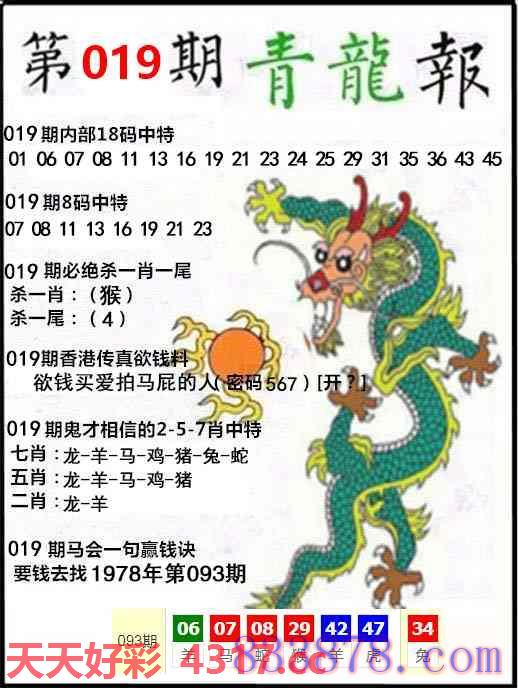 第019期青龍報
019期内部18码中特
01 06 07 08 11 13 16 19 21 23 24 25 29 31 35 36 43 45
019期8码中特
07 08 11 13 16 19 21 23
019期必绝杀一肖一尾
杀一肖：（猴）
杀一尾：（4）
019期香港传真欲钱料
欲钱买爱拍马屁的人(密码567）[开？]
019期鬼才相信的2-5-7肖中特
七肖：龙-羊-马-鸡-猪-兔-蛇
五肖：龙-羊-马-鸡-猪
二肖：龙-羊
019期马会一句赢钱诀
要钱去找1978年第093期
093期 06 07 08 29 42 47 34
羊 马 蛇 猴 羊 虎 兔
天天好彩 4317.cc